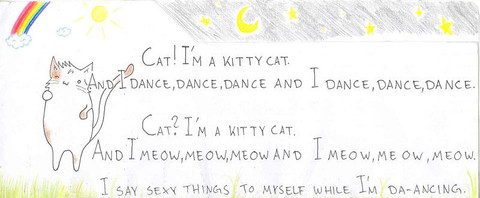 CAT! I'M A KITTY CAT.
AND I DANCE, DANCE, DANCE AND I DANCE, DANCE, DANCE.
CAT? I'M A KITTY CAT.
AND I MEOW, MEOW, MEOW AND I MEOW, MEOW, MEOW.
I SAY SEXY THINGS TO MYSELF WHILE I'M DA-ANCING.